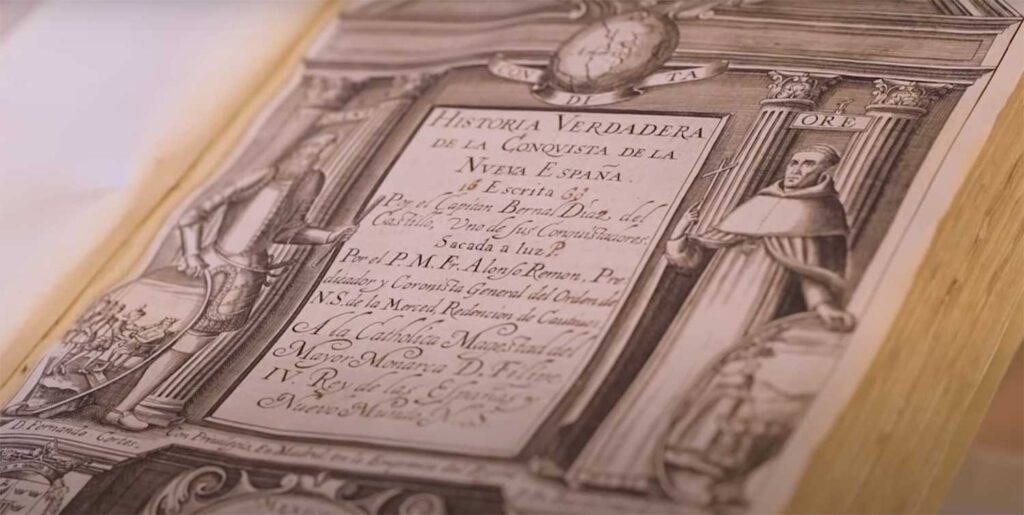 CON TA
DI
ORE
HISTORIA VERDADERA
DE LA CONQVISTA DE LA
NVEVA ESPAÑA.
16 Escrita 63
Por el Capitan Bernal Diaz, del
Castillo, Vno de sus Conquistadores.
Sacada a luz P.
Por el P. M. Fr. Alonso Remon, Pre
dicador y Coronista General del Orden de
N. S. de la Merced, Redencion de Cautiuos.
A la Catholica Magestad del
Mayor Monarca D. Filipe
IV. Rey de las Españas y
Nuevo Mundo, N. S.
D. Fernando Cortes
Con Privilegio. En Madrid, en la Emprenta del
MEXICO